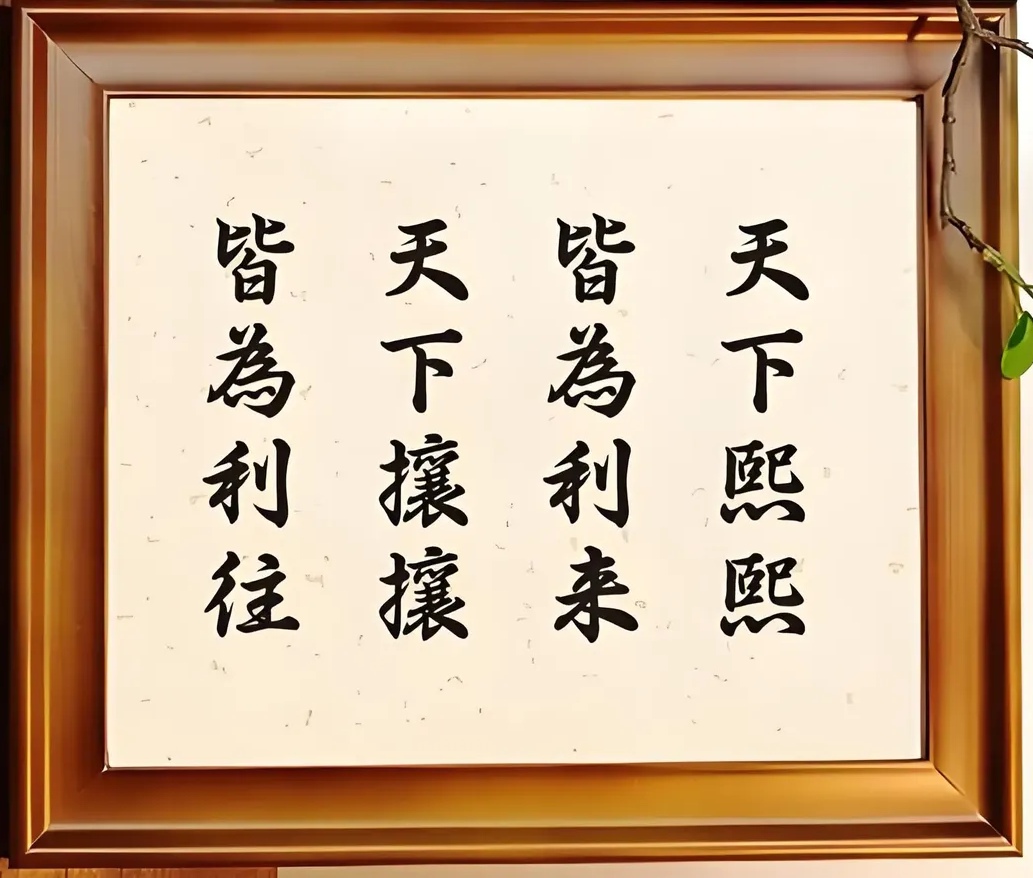 天下熙熙
皆為利来
天下攘攘
皆為利往